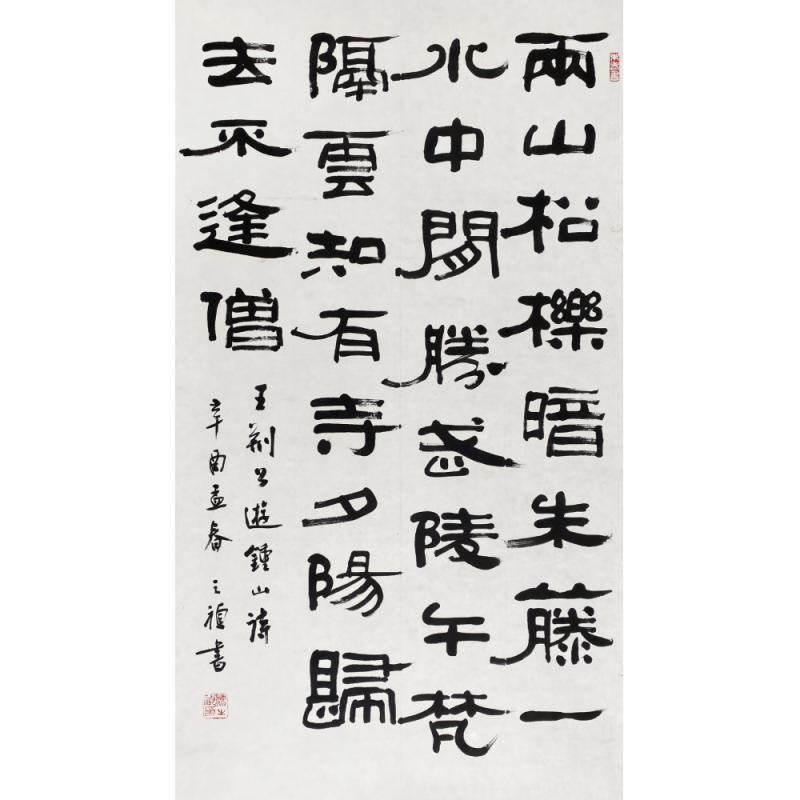 兩山松櫟暗朱藤一
水中間勝武陵午梵
隔雲知有寺夕陽歸
去不逢僧
王荊公遊鍾山詩
辛酉孟春之禪書